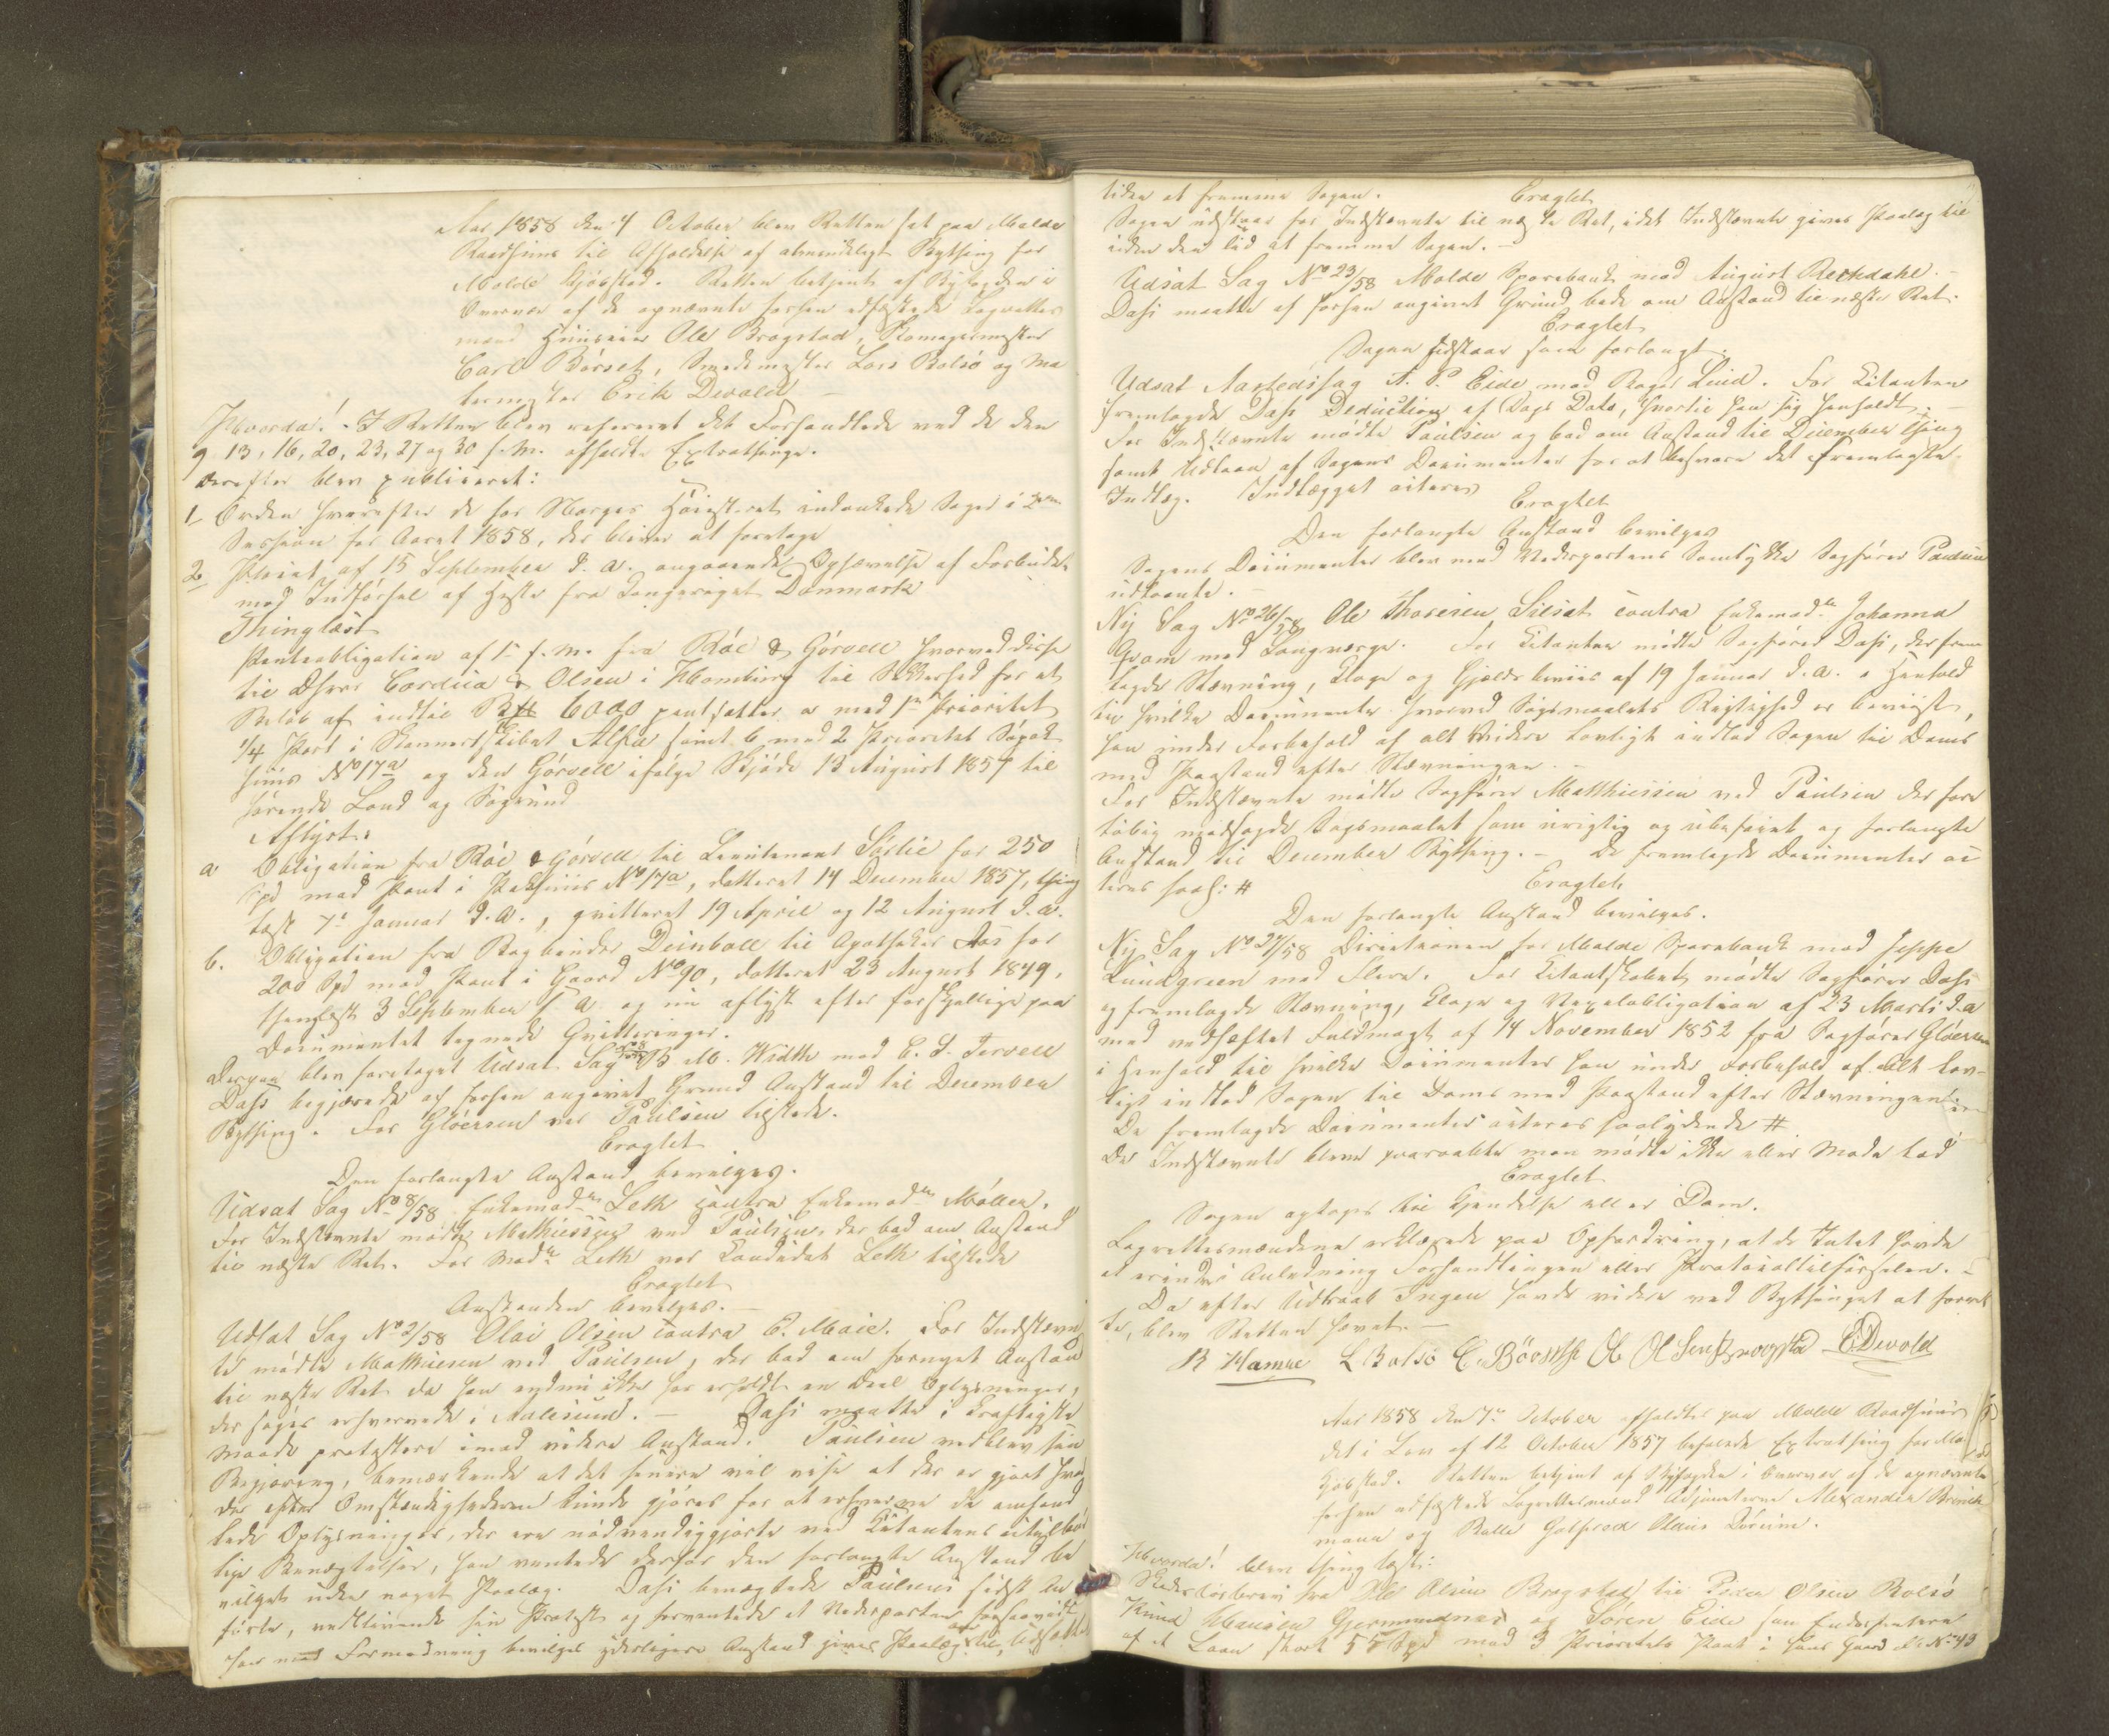 Aar 1858 den 4 October blev Retten sat paa Molde
Raadhuus til Afholdelse af almindeligt Bything for
Molde Kjøbstad. Retten betjent af Byfogden i
Overvær af de opnævnte forhen edfæstede Lagrettes
mænd Huuseier Ole Brogstad, Skomagermester
Carl Börset, Smedemester Lars Bolsö og Ma
lermester Erik Devold
Hvorda! I Retten blev refereret det Forhandlede ved de den
9, 13, 16, 20, 23, 27 og 30 f. M. afholdte Extrathinge.
Derefter blev publiceret:
1, Orden hvorefter de for Norges Höiesteret indankede Sager i 2den
Session for Aaret 1858, der bliver at foretage
2, Placat af 15 September d. A. angaaende Ophævelse af Forbudet
mod Indförsel af Heste fra Kongeriget Danmark
Thinglæst
Panteobligation af 1 f. M. fra Röe & Görvell hvorved disse
til D'Hrr Cordua & Olsen i Hamburg til Sikkerhed for et
Belöb af indtil 6000 pantsætter a med 1ste Prioritet
1/4 Part i Skonnertskibet Alpha samt b med 2 Prioritet Söpak
huus No 17a og den Görvell ifölge Skjöde 13 August 1857 til
hörende Lond og Söegrund
Aflyst.
a Obligation fra Röe & Görvell til Lieutenant Sörlie for 250
Spd med Pant i Pakhuus No 17a, datteret 14 December 1857, thing
læst 7 Januar d. A., qvitteret 19 April og 12 August d. A.
b. Obligation fra Bogbinder Deinboll til Apotheker Aas for
200 Spd med Pant i Gaard No 90, datteret 23 August 1849,
thinglæst 3 September s. A. og nu aflyst efter forskjellige paa
Documentet tegnede Qvitteringer.
Derpaa blev foretaget Udsat Sag B. M. Width mod C. L. Tervell
Dahs begjærede af forhen angivet Grund Anstand til December
Bything. For Glöersen var Paulsen tilstede.
Eragtet
Den forlangte Anstand bevilges.
Udsat Sag No 8/58 Enkemadme Leth contra Enkemadme Möller.
For Indstevnte mödte Mathiessen ved Paulsen, der bad om Anstand
til næste Ret. For Mad. Leth var Candidat Leth tilstede
Eragtet
Anstanden bevilges.
Udsat Sag No 2/58 Olai Olsen contra C. Moie. For Indstevn
te mödte Mathiesen ved Paulsen, der bad om fornyet Anstand
til næste Ret da han endnu ikke har erholdt en Deel Oplysninger,
der söges erhvervede i Aalesund. – Dahs maatte i kraftigste
Maade protestere imod videre Anstand. Paulsen vedblev sin
Begjæring, bemærkende at det senere vil vise at der er gjort hvad
der efter Omstændighederne kunde gjöres for at erhverve de omhand
lede Oplysninger, der ere nödvendiggjorte ved Citantens utilbör
lige Benægtelser, han ventede derfor den forlangte Anstand be
vilget uden noget Paalæg. Dahs benægtede Paulsens sidst An
förte, vedblivende sin Protest og forventede at Modparten forsaavidt
han mod Formodning bevilges yderligere Anstand gives Paalæg til, Udsætte
tiden at fremme Sagen.
Eragtet
Sagen udstaar for Indstevnte til næste Ret, idet Indstevnte gives Paalæg til
inden den Tid at fremme Sagen. –
Udsat Sag No 23/58 Molde Sparebank mod August Reckdahl. –
Dahs maatte af forhen angivet Grund bede om Anstand til næste Ret.
Eragtet
Sagen udstaar som forlangt.
Udsat Aastedssag A. P. Eide mod Roger Lund. For Citanten
fremlagde Dahs Deduction af Dags Dato, hvortil han sig henholdt. –
For Indstevnte mödte Paulsen og bad om Anstand til December Thing
samt Udlaan af Sagens Documenter for at besvare det fremlagte
Indlæg. Indlægget aiteres
Eragtet
Den forlangte Anstand bevilges
Sagens Documenter blev med Modpartens Samtykke Sagförer Paulsen
udlaante. –
Ny Sag No 26/58 Ole Thoresen Silset contra Enkemad. Johanna
Gram med Laugværge. For Citanten mödte Sagförer Dahs, der frem
lagde Stævning, Klage og Gjældsbeviis af 19 Januar d. A. i Henhold
til hvilke Documenter hvorved Sögsmaalets Rigtighed er beviist,
han under Forbehold af alt videre Lovligt indlod Sagen til Doms
med Paastand efter Stævningen. –
For Indstævnte mödte Sagförer Matthiessen ved Paulsen der fore
löbig modsagde Sögsmaalet som urigtig og ubeföiet og forlangte
Anstand til December Bything. – De fremlagde Documenter ai
teres saal: #
Eragtet
Den forlangte Anstand bevilges.
Ny Sag No 27/58 Directionen for Molde Sparebank mod Jeppe
Lundgreen med Flere. For Citantskabet mödte Sagförer Dahs
og fremlagde Stævning, Klage og Vexelobligation af 23 Marts d. A
med vedheftet Fuldmagt af 14 November 1852 fra Sagförer Glöersen
i Henhold til hvilke Documenter han under Forbehold af alt Lov-
ligt indlod Sagen til Doms med Paastand efter Stævningen
De fremlagde Documenter aiteres saalydende #
De Indstævnte bleve paaraabte men mödte ikke eller Mode lod
Eragtet
Sagen optages til Kjendelse eller Dom.
Lagrettesmændene erklærede paa Opfordring, at de Intet havde
at erindre i Anledning Forhandlingen eller Protocoltilförselen. –
Da efter Udraab Ingen havde videre ved Bythinget at foreret
te, blev Retten hævet. –
B Hamre L Bolsö C. Börseth Ole Olsen Brogstad E Devold
Aar 1858 den 7de October afholdtes paa Molde Raadhuus
det i Lov af 12 October 1857 befalede Extrathing for Molde
Kjöbstad. Retten betjent af Byfogden i Overvær af de opnævnte
forhen edfæstede Lagrettesmænd Adjuncterne Alexander Brinch
mann og Olaus Dörum.
Hvorda! blev thinglæst:
Skadeslösbrev fra Ole Olsen Brogstad til Peder Olsen Bolsö
Knud Hansen Gjermundnes og Sören Eide som Endossentere
af et Laan stort 55 Spd med 3 Prioritets Pant i hans Gaard No 43